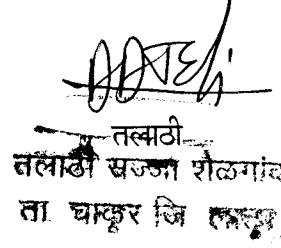 तलाठी
तलाठी सज्जा शेळगांव
ता चाकूर जि